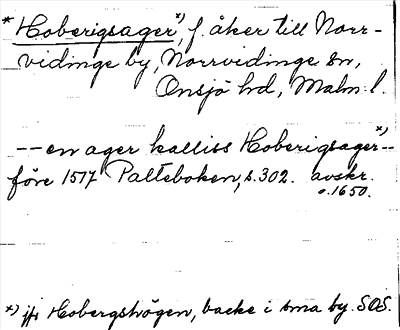 * Hoberigsager *), f. åker till Norr-
vidinge by, Norrvidinge sn,
Onsjö hd, Malm. l.
-- en ager kalliss Hoberigsager *) --
före 1517 Palteboken, s. 302. avskr.
o. 1650.
*) jfr Hobergshögen, backe i sma by. SOS.